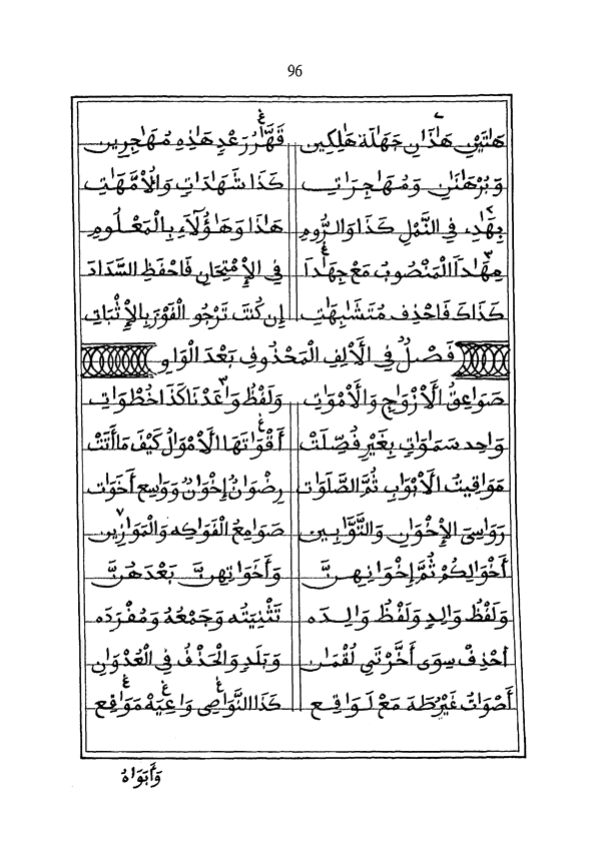 96
هَٰتَيْنِ هَٰذَٰنِ جَهَٰلَة هَٰلِكِين قَهَّٰرُ رَعْدٍ هَٰذِهِ مُهَٰجِرِين
وَبُرْهَٰنَٰنِ وَمُهَٰجِرَاتِ كَذَا شَهَٰدَاتِ وَالْأُمَّهَٰتِ
بِهَٰدِ فِي النَّمْلِ كَذَا وَالرُّومِ هَٰذَا وَهَٰؤُلَآءِ بِالْمَعْلُومِ
مِهَٰداً الْمَنْصُوبُ مَعْ جِهَٰداً فِي الْإِمْتِحَانِ فَاحْفَظِ السَّدَادَ
كَذَاكَ فَاحْذِفْ مُتَشَٰبِهَٰتِ إِن كُنتَ تَرْجُو الْفَوْزَ بِالْإِثْبَاتِ
فَصْلٌ فِي الْأَلِفِ الْمَحْذُوفِ بَعْدَ الْوَاوِ
صَوَٰعِقُ الْأَزْوَٰجِ وَالْأَمْوَٰتِ وَلَفْظُ وَٰعَدْنَا كَذَا خُطُوَٰتِ
وَاحِد سَمَٰوَاتٍ بِغَيْرِ فُصِّلَتْ أَقْوَٰتَهَا الْأَمْوَٰلُ كَيْفَ مَا أَتَتْ
مَوَٰقِيتُ الْأَبْوَٰبِ ثُمَّ الصَّلَوَٰت رِضْوَٰنُ إِخْوَٰنٌ وَوَٰسِع أَخَوَٰت
رَوَٰسِىَ الْإِخْوَٰنِ وَالتَّوَّٰبِين صَوَٰمِعُ الْفَوَٰكِه وَالْمَوَٰزِين
أَخْوَٰلِكُمْ ثُمَّ إِخْوَٰنِهِنَّ وَأَخَوَٰتِهِنَّ بَعْدَهُنَّ
وَلَفْظُ وَٰلِدٍ وَلَفْظُ وَٰلِدَه تَثْنِيَتُه وَجَمْعُهُ وَمُفْرَدَه
اُحْذِفْ سِوَى أَخَّرْتَنِي لُقْمَٰن وَبَلَدٍ وَالْحَذْفُ فِي الْعُدْوَٰنِ
أَصْوَٰتُ غَيْرُ طَهَ مَعْ لَوَٰقِع كَذَا النَّوَٰصِى وَٰعِيَهْ مَوَٰقِع
وَأَبَوَٰهُ